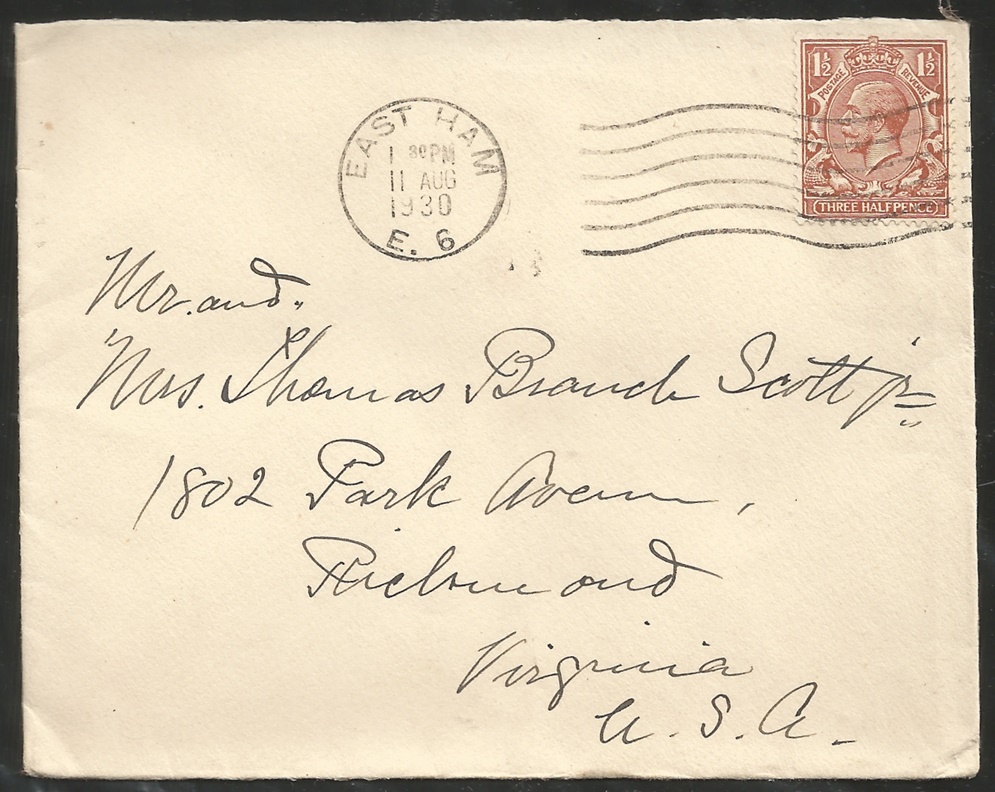 1½ 1½
POSTAGE REVENUE
THREE HALFPENCE
EAST HAM
1 30 PM
11 AUG
1930
E. 6
Mr. and
Mrs. Thomas Branch Scott Jr
1802 Park Avenue,
Richmond
Virginia
U. S. A.